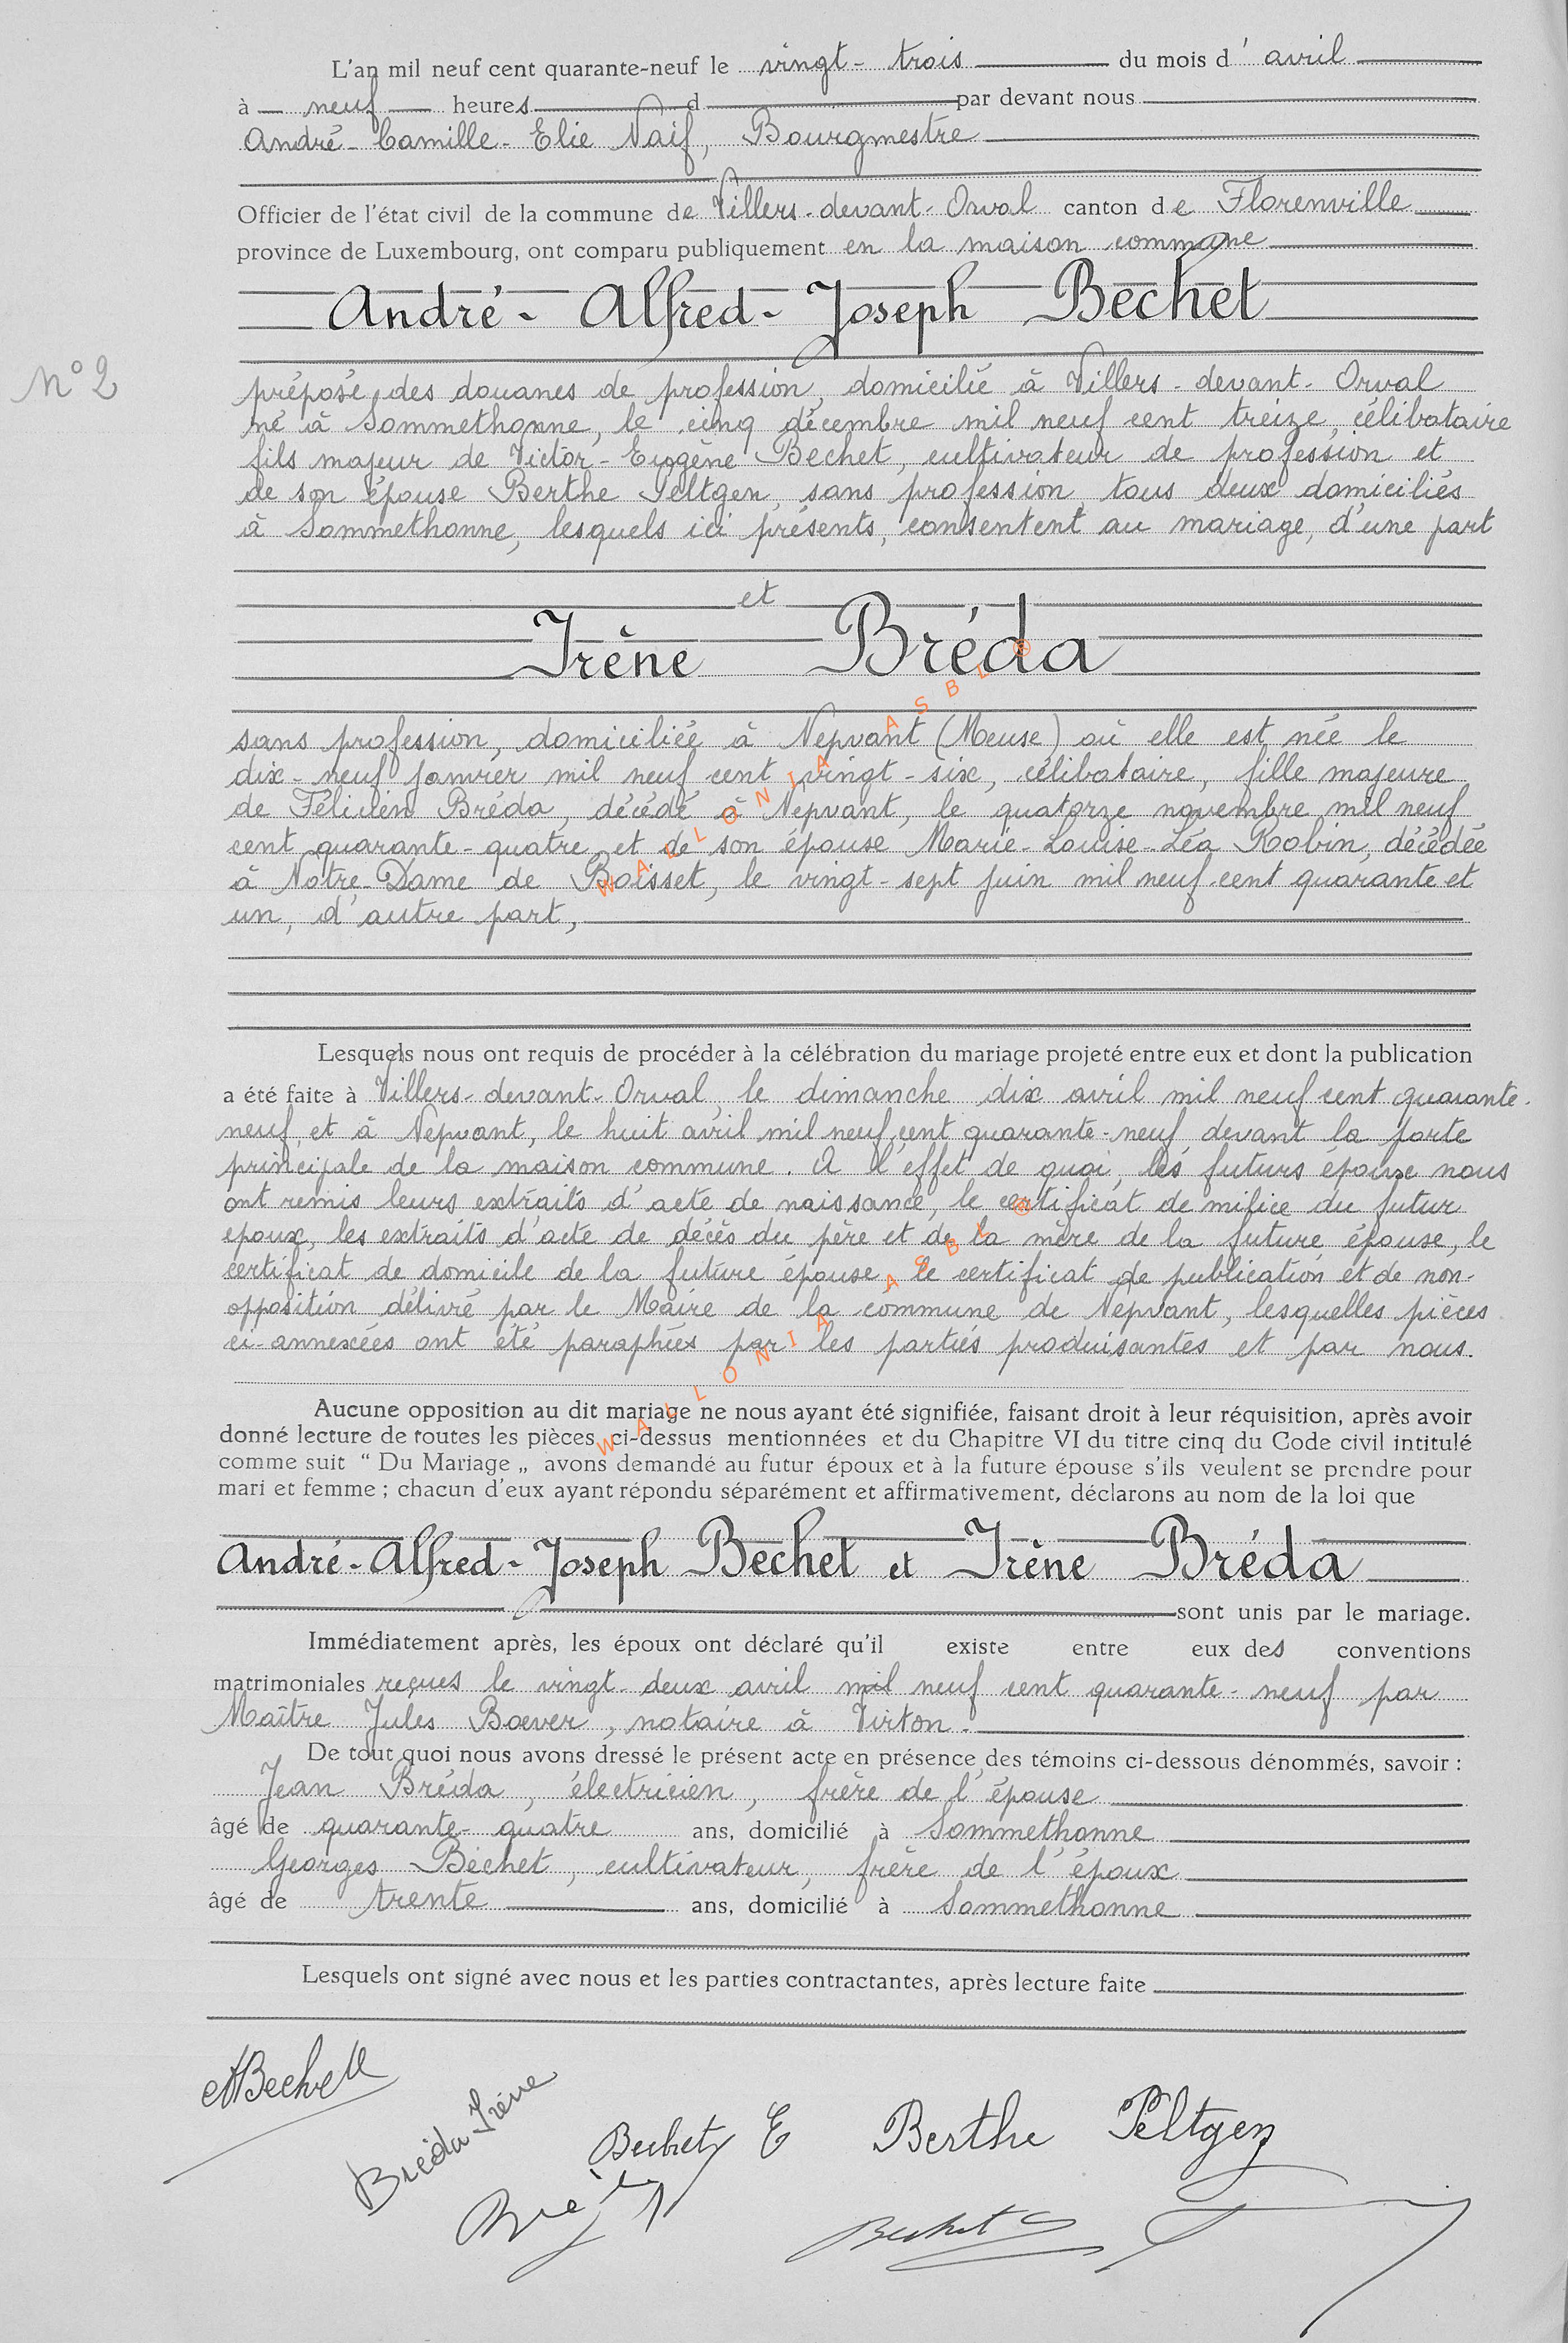 L'an mil neuf cent quarante-neuf le vingt-trois du mois d'avril
à neuf heures d par devant nous
André-Camille-Elie Naif, Bourgmestre
Officier de l'état civil de la commune de Villers-devant-Orval canton de Florenville
province de Luxembourg, ont comparu publiquement en la maison commune
André-Alfred-Joseph Bechet
N° 2
préposé des douanes de profession, domicilié à Villers-devant-Orval
né à Sommethonne, le cinq décembre mil neuf cent treize, célibataire
fils majeur de Victor-Eugène Bechet, cultivateur de profession et
de son épouse Berthe Peltgen, sans profession, tous deux domiciliés
à Sommethonne, lesquels ici présents, consentent au mariage, d'une part
et
Irène Bréda
sans profession, domiciliée à Nepvant (Meuse) où elle est née le
dix-neuf janvier mil neuf cent vingt-six, célibataire, fille majeure
de Félicien Bréda, décédé à Nepvant, le quatorze novembre mil neuf
cent quarante-quatre, et de son épouse Marie-Louise-Léa Robin, décédée
à Notre-Dame de Boisset, le vingt-sept juin mil neuf cent quarante et
un, d'autre part,
Lesquels nous ont requis de procéder à la célébration du mariage projeté entre eux et dont la publication
a été faite à Villers-devant-Orval, le dimanche dix avril mil neuf cent quarante-
neuf, et à Nepvant, le huit avril mil neuf cent quarante-neuf devant la porte
principale de la maison commune. A l'effet de quoi, les futurs époux nous
ont remis leurs extraits d'acte de naissance, le certificat de milice du futur
époux, les extraits d'acte de décès du père et de la mère de la future épouse, le
certificat de domicile de la future épouse, le certificat de publication et de non-
opposition délivré par le Maire de la commune de Nepvant, lesquelles pièces
ci-annexées ont été paraphées par les parties produisantes et par nous.
Aucune opposition au dit mariage ne nous ayant été signifiée, faisant droit à leur réquisition, après avoir
donné lecture de toutes les pièces ci-dessus mentionnées et du Chapitre VI du titre cinq du Code civil intitulé
comme suit “ Du Mariage „ avons demandé au futur époux et à la future épouse s'ils veulent se prendre pour
mari et femme ; chacun d'eux ayant répondu séparément et affirmativement, déclarons au nom de la loi que
André-Alfred-Joseph Bechet et Irène Bréda
sont unis par le mariage.
Immédiatement après, les époux ont déclaré qu'il existe entre eux des conventions
matrimoniales reçues le vingt-deux avril mil neuf cent quarante-neuf par
Maître Jules Boever, notaire à Virton.
De tout quoi nous avons dressé le présent acte en présence des témoins ci-dessous dénommés, savoir :
Jean Bréda, électricien, frère de l'épouse
âgé de quarante-quatre ans, domicilié à Sommethonne
Georges Béchet, cultivateur, frère de l'époux
âgé de trente ans, domicilié à Sommethonne
Lesquels ont signé avec nous et les parties contractantes, après lecture faite
ABechet
Bréda Irène
Bechet E
Berthe Peltgen
Bechet G
WALLONIA ASBL ®
WALLONIA ASBL ®